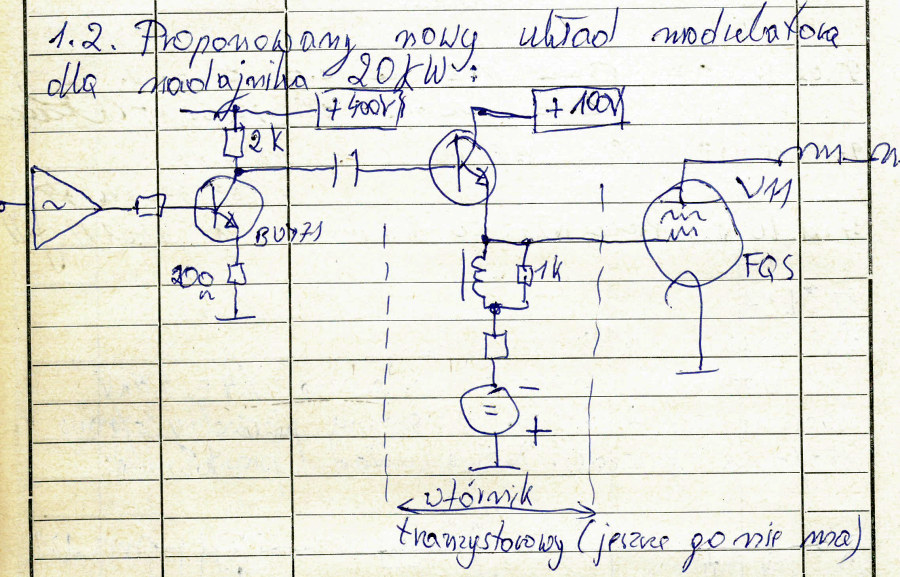 1.2. Proponowany nowy układ modulatora
dla nadajnika 20kW:
+400V
+100V
2k
~
V11
BU971
FQS
200
Ω
1k
−
=
+
wtórnik
tranzystorowy (jeszcze go nie ma)